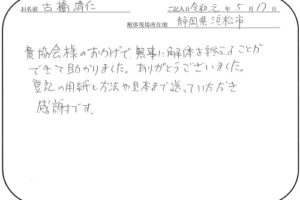 お名前 古橋清仁 ご記入日 令和元年5月17日
解体現場所在地 静岡県浜松市
貴協会様のおかげで、無事に解体を終えることが
できて助かりました。ありがとうございました。
登記の用紙と方法や見本まで送っていただき
感謝です。